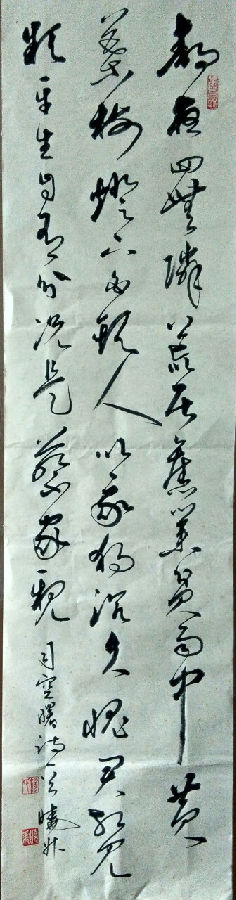 静夜四无邻荒居旧业贫雨中黄
叶树灯下白头人以我独沉久愧君相见
频平生自有分况是蔡家亲
司空曙诗一首